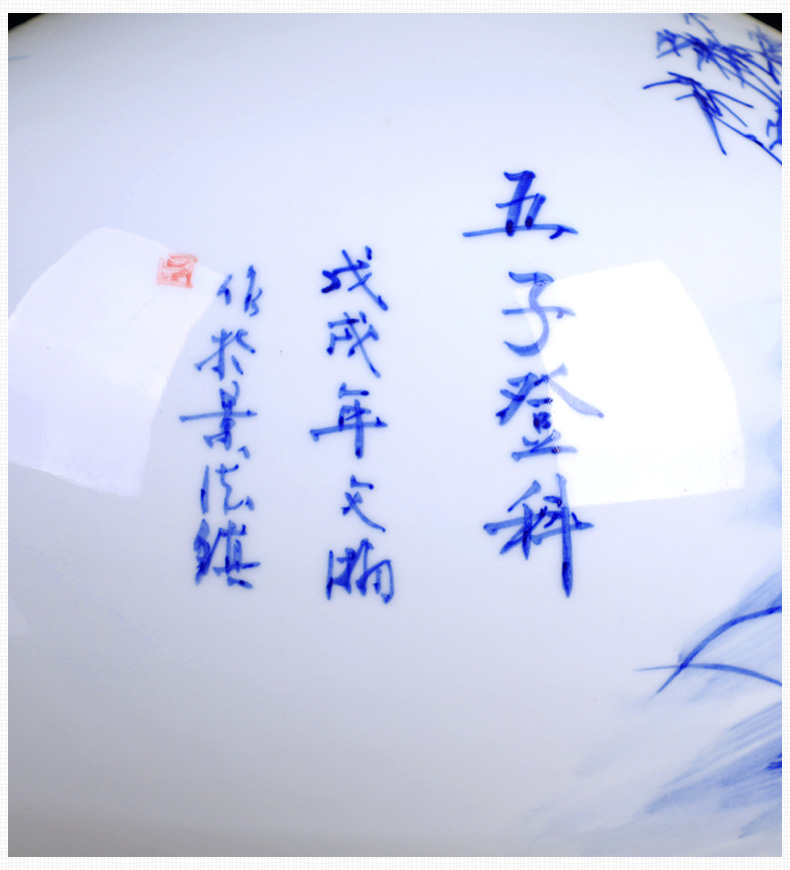 五子登科
戊戌年文
作於景德鎮